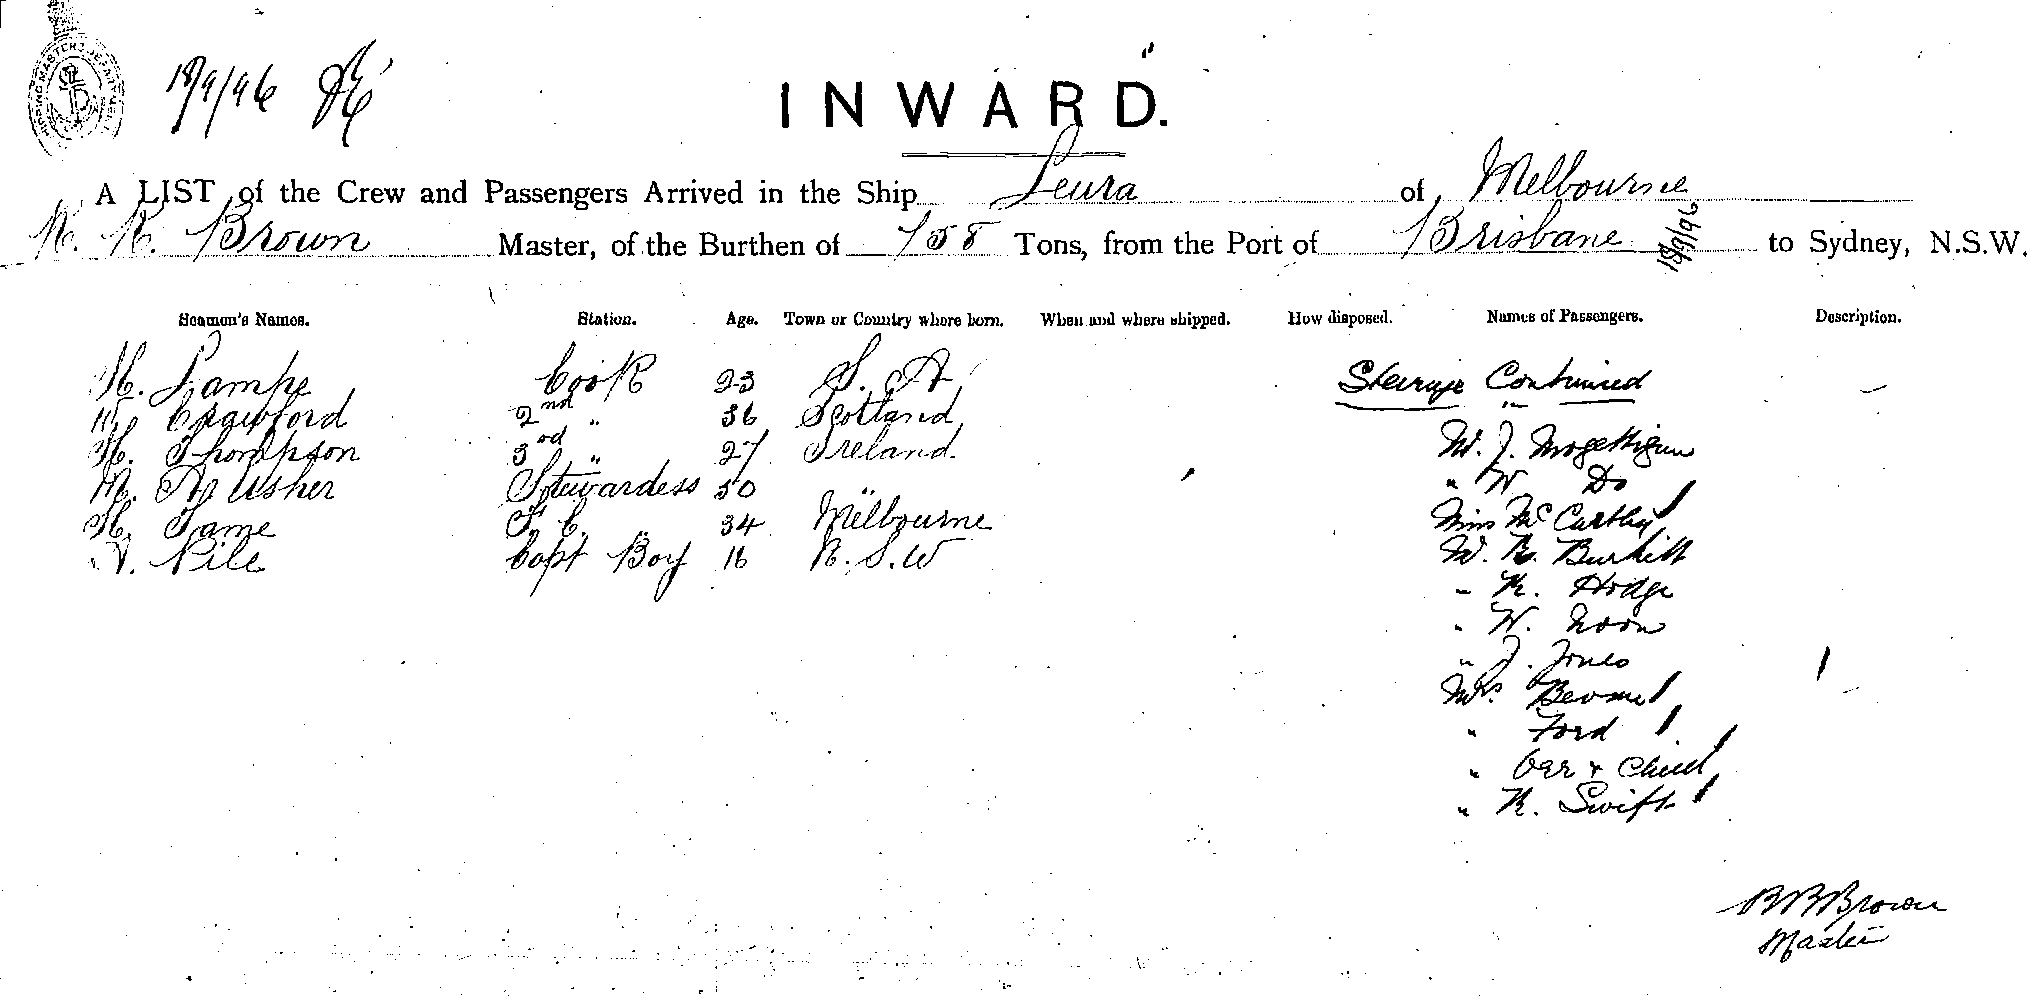 SHIPPING MASTER'S DEPARTMENT
18/9/96
INWARD.
A LIST of the Crew and Passengers Arrived in the Ship Leura of Melbourne
R. R. Brown Master, of the Burthen of 758 Tons, from the Port of Brisbane 18/9/96 to Sydney, N.S.W.
Seamen's Names. Station. Age. Town or Country where born. When and where shipped. How disposed. Names of Passengers. Description.
H. Lampe Cook 23 S. A. Steerage Continued
W. Crawford 2nd " 36 Scotland
H. Thompson 3rd " 27 Ireland. Mr. J. Mogettigan
M. A Usher Stewardess 50 " W Do
H. Tame F. C. 34 Melbourne Miss McCarthy
V. Pile Capt Boy 16 N. S. W Mr. R. Burkitt
" R. Hodge
" W. Noon
" J. Jones
Mrs
" Ford
" Orr + Child
" R. Swift
R R Brown
Master